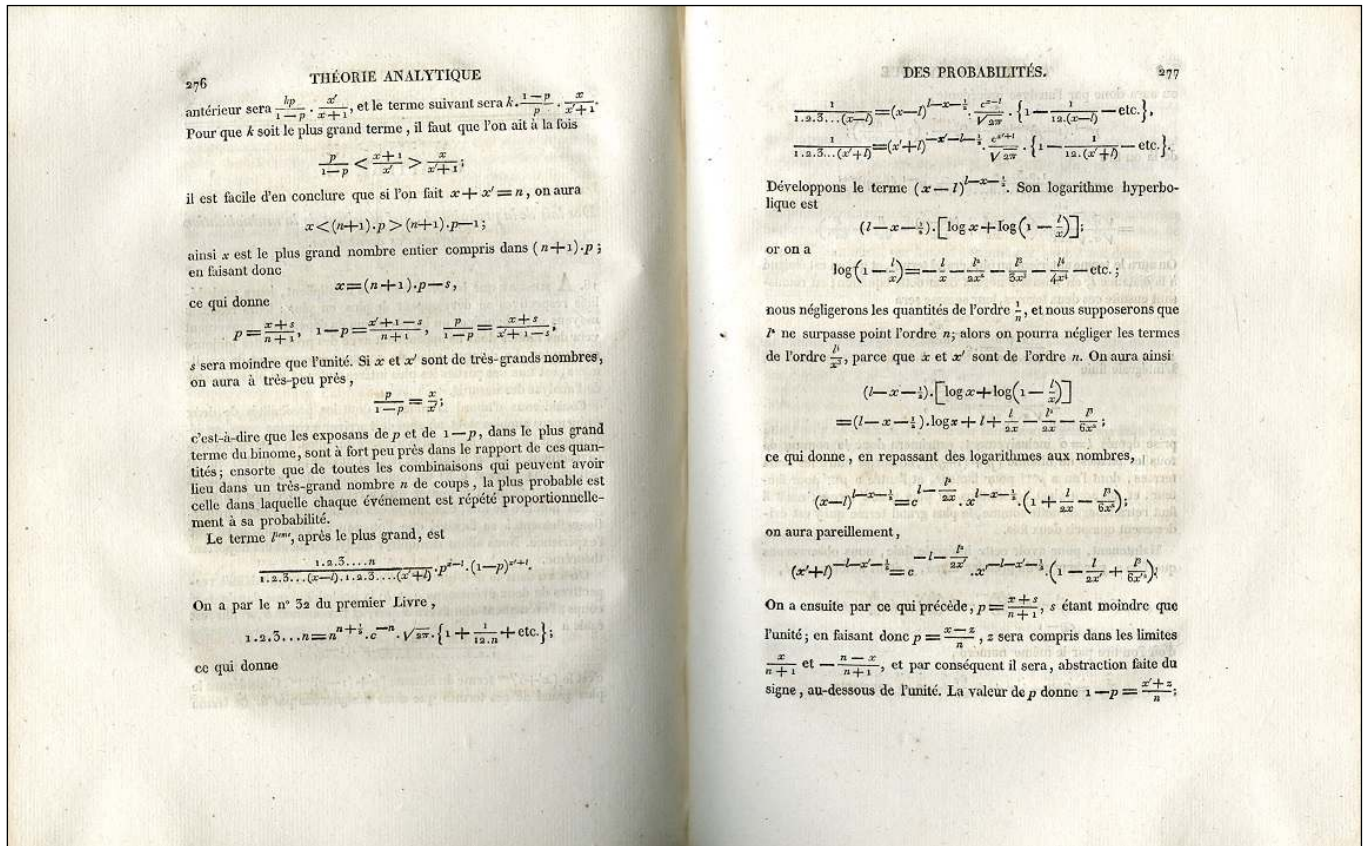 276 THÉORIE ANALYTIQUE
antérieur sera kp/(1—p) · x'/(x+1), et le terme suivant sera k · (1—p)/p · x/(x'+1).
Pour que k soit le plus grand terme, il faut que l'on ait à la fois
p/(1—p) < (x+1)/x' > x/(x'+1);
il est facile d'en conclure que si l'on fait x + x' = n, on aura
x<(n+1).p>(n+1).p—1;
ainsi x est le plus grand nombre entier compris dans (n+1).p;
en faisant donc
x=(n+1).p—s,
ce qui donne
p = (x+s)/(n+1), 1—p = (x'+1—s)/(n+1), p/(1—p) = (x+s)/(x'+1—s),
s sera moindre que l'unité. Si x et x' sont de très-grands nombres,
on aura à très-peu près,
p/(1—p) = x/x';
c'est-à-dire que les exposans de p et de 1—p, dans le plus grand
terme du binome, sont à fort peu près dans le rapport de ces quan-
tités; ensorte que de toutes les combinaisons qui peuvent avoir
lieu dans un très-grand nombre n de coups, la plus probable est
celle dans laquelle chaque événement est répété proportionnelle-
ment à sa probabilité.
Le terme l^ieme, après le plus grand, est
1.2.3....n/(1.2.3...(x—l).1.2.3....(x'+l)) · p^(x—l) · (1—p)^(x'+l).
On a par le n° 32 du premier Livre,
1.2.3...n = n^(n+½) . c^(—n) . √2π . {1 + 1/12.n + etc.};
ce qui donne
DES PROBABILITÉS. 277
1/(1.2.3...(x—l)) = (x—l)^(l—x—½) · c^(x—l)/√2π · {1 — 1/12.(x—l) — etc.},
1/(1.2.3...(x'+l)) = (x'+l)^(—x'—l—½) · c^(x'+l)/√2π · {1 — 1/12.(x'+l) — etc.}.
Développons le terme (x—l)^(l—x—½). Son logarithme hyperbo-
lique est
(l—x—½).[log x+log(1 — l/x)];
or on a
log(1 — l/x) = — l/x — l²/2x² — l³/3x³ — l⁴/4x⁴ — etc.;
nous négligerons les quantités de l'ordre 1/n, et nous supposerons que
l² ne surpasse point l'ordre n; alors on pourra négliger les termes
de l'ordre l⁴/x³, parce que x et x' sont de l'ordre n. On aura ainsi
(l—x—½).[log x+log(1 — l/x)]
=(l—x—½).logx + l + l/2x — l²/2x — l³/6x²;
ce qui donne, en repassant des logarithmes aux nombres,
(x—l)^(l—x—½) = c^(l — l²/2x) . x^(l—x—½) . (1 + l/2x — l³/6x²);
on aura pareillement,
(x'+l)^(—l—x'—½) = c^(—l — l²/2x') . x'^(—l—x'—½) . (1 — l/2x' + l³/6x'²);
On a ensuite par ce qui précède, p = (x+s)/(n+1), s étant moindre que
l'unité; en faisant donc p = (x—z)/n, z sera compris dans les limites
x/(n+1) et — (n—x)/(n+1), et par conséquent il sera, abstraction faite du
signe, au-dessous de l'unité. La valeur de p donne 1—p = (x'+z)/n;